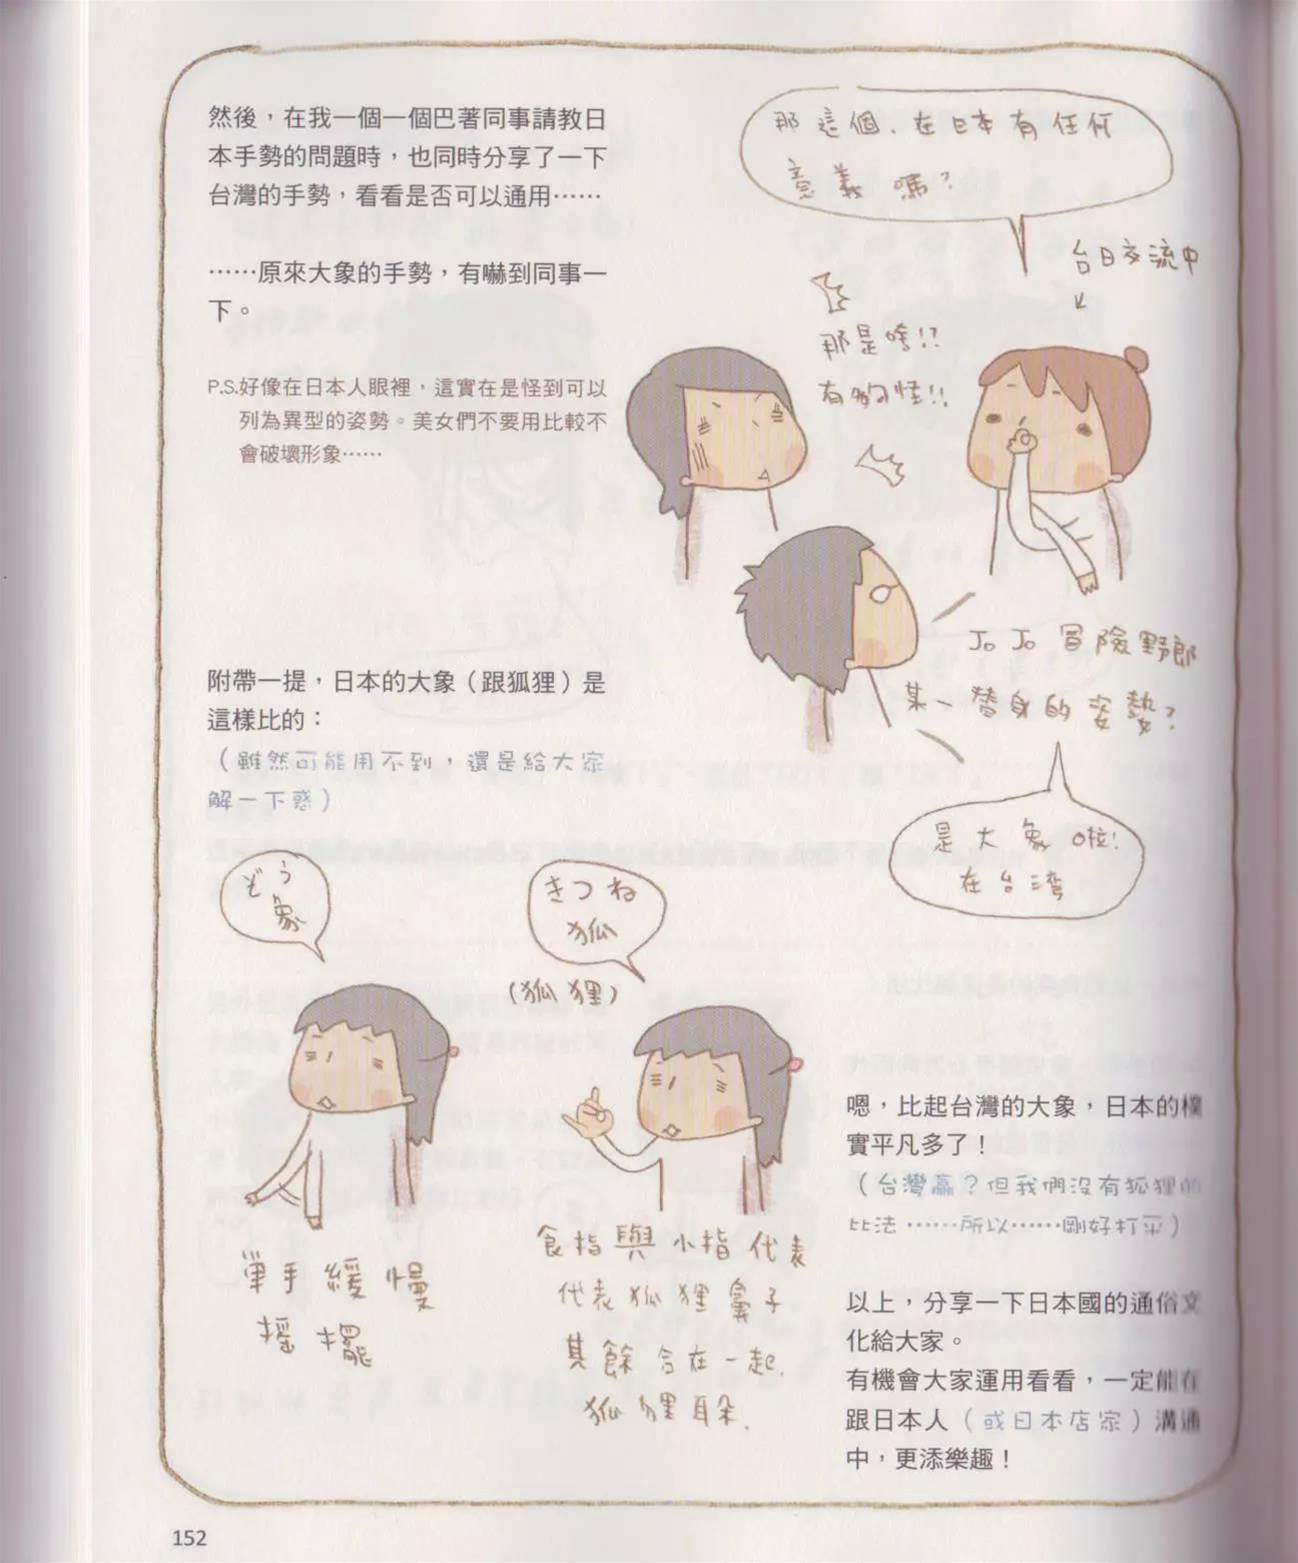 然後，在我一個一個巴著同事請教日
本手勢的問題時，也同時分享了一下
台灣的手勢，看看是否可以通用⋯⋯
⋯⋯原來大象的手勢，有嚇到同事一
下。
P.S.好像在日本人眼裡，這實在是怪到可以
列為異型的姿勢。美女們不要用比較不
會破壞形象⋯⋯
那這個、在日本有任何
意義嗎？
台日交流中
那是啥!?
有夠怪!!
JoJo冒險野郎
某一替身的姿勢?
是大象啦!
在台湾
附帶一提，日本的大象（跟狐狸）是
這樣比的：
（雖然可能用不到，還是給大家
解一下惑）
ぞう
象
きつね
狐
(狐狸)
單手緩慢
搖擺
食指與小指代表
代表狐狸鼻子
其餘合在一起.
狐狸耳朵.
嗯，比起台灣的大象，日本的樸
實平凡多了！
（台灣贏？但我們沒有狐狸的
比法⋯⋯所以⋯⋯剛好打平）
以上，分享一下日本國的通俗文
化給大家。
有機會大家運用看看，一定能在
跟日本人（或日本店家）溝通
中，更添樂趣！
152